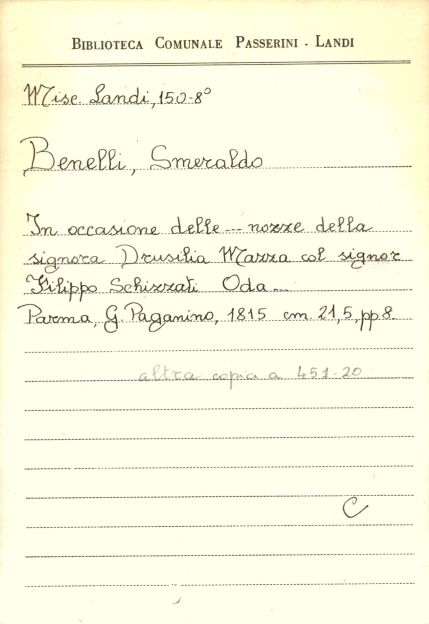 BIBLIOTECA COMUNALE PASSERINI - LANDI
Misc. Landi, 150-8°
Benelli, Smeraldo
In occasione delle --- nozze della
signora Drusilia Mazza col signor
Filippo Schizzati Oda ---
Parma, G. Paganino, 1815 cm. 21,5, pp. 8.
altra copia a 451-20
C